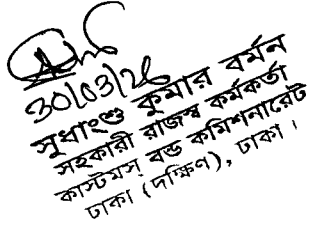 30/03/26
সুধাংশু কুমার বর্মন
সহকারী রাজস্ব কর্মকর্তা
কাস্টমস্ বন্ড কমিশনারেট
ঢাকা (দক্ষিণ), ঢাকা।